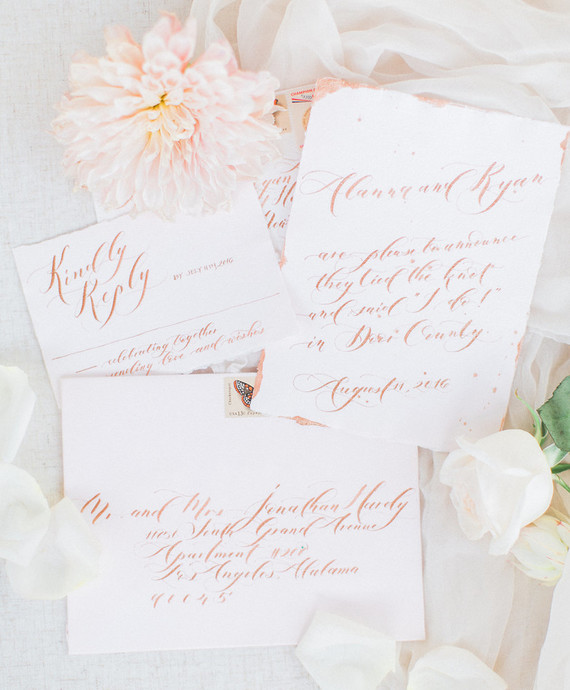 Alanna and Ryan
are please to announce
they tied the knot
and said "I do!"
in Door County.
August 11, 2016
Kindly
Reply
BY JULY 11TH, 2016
celebrating together
sending love and wishes
Mr. and Mrs. Jonathan Hardy
South Grand Avenue
Apartment
Los Angeles, Alabama